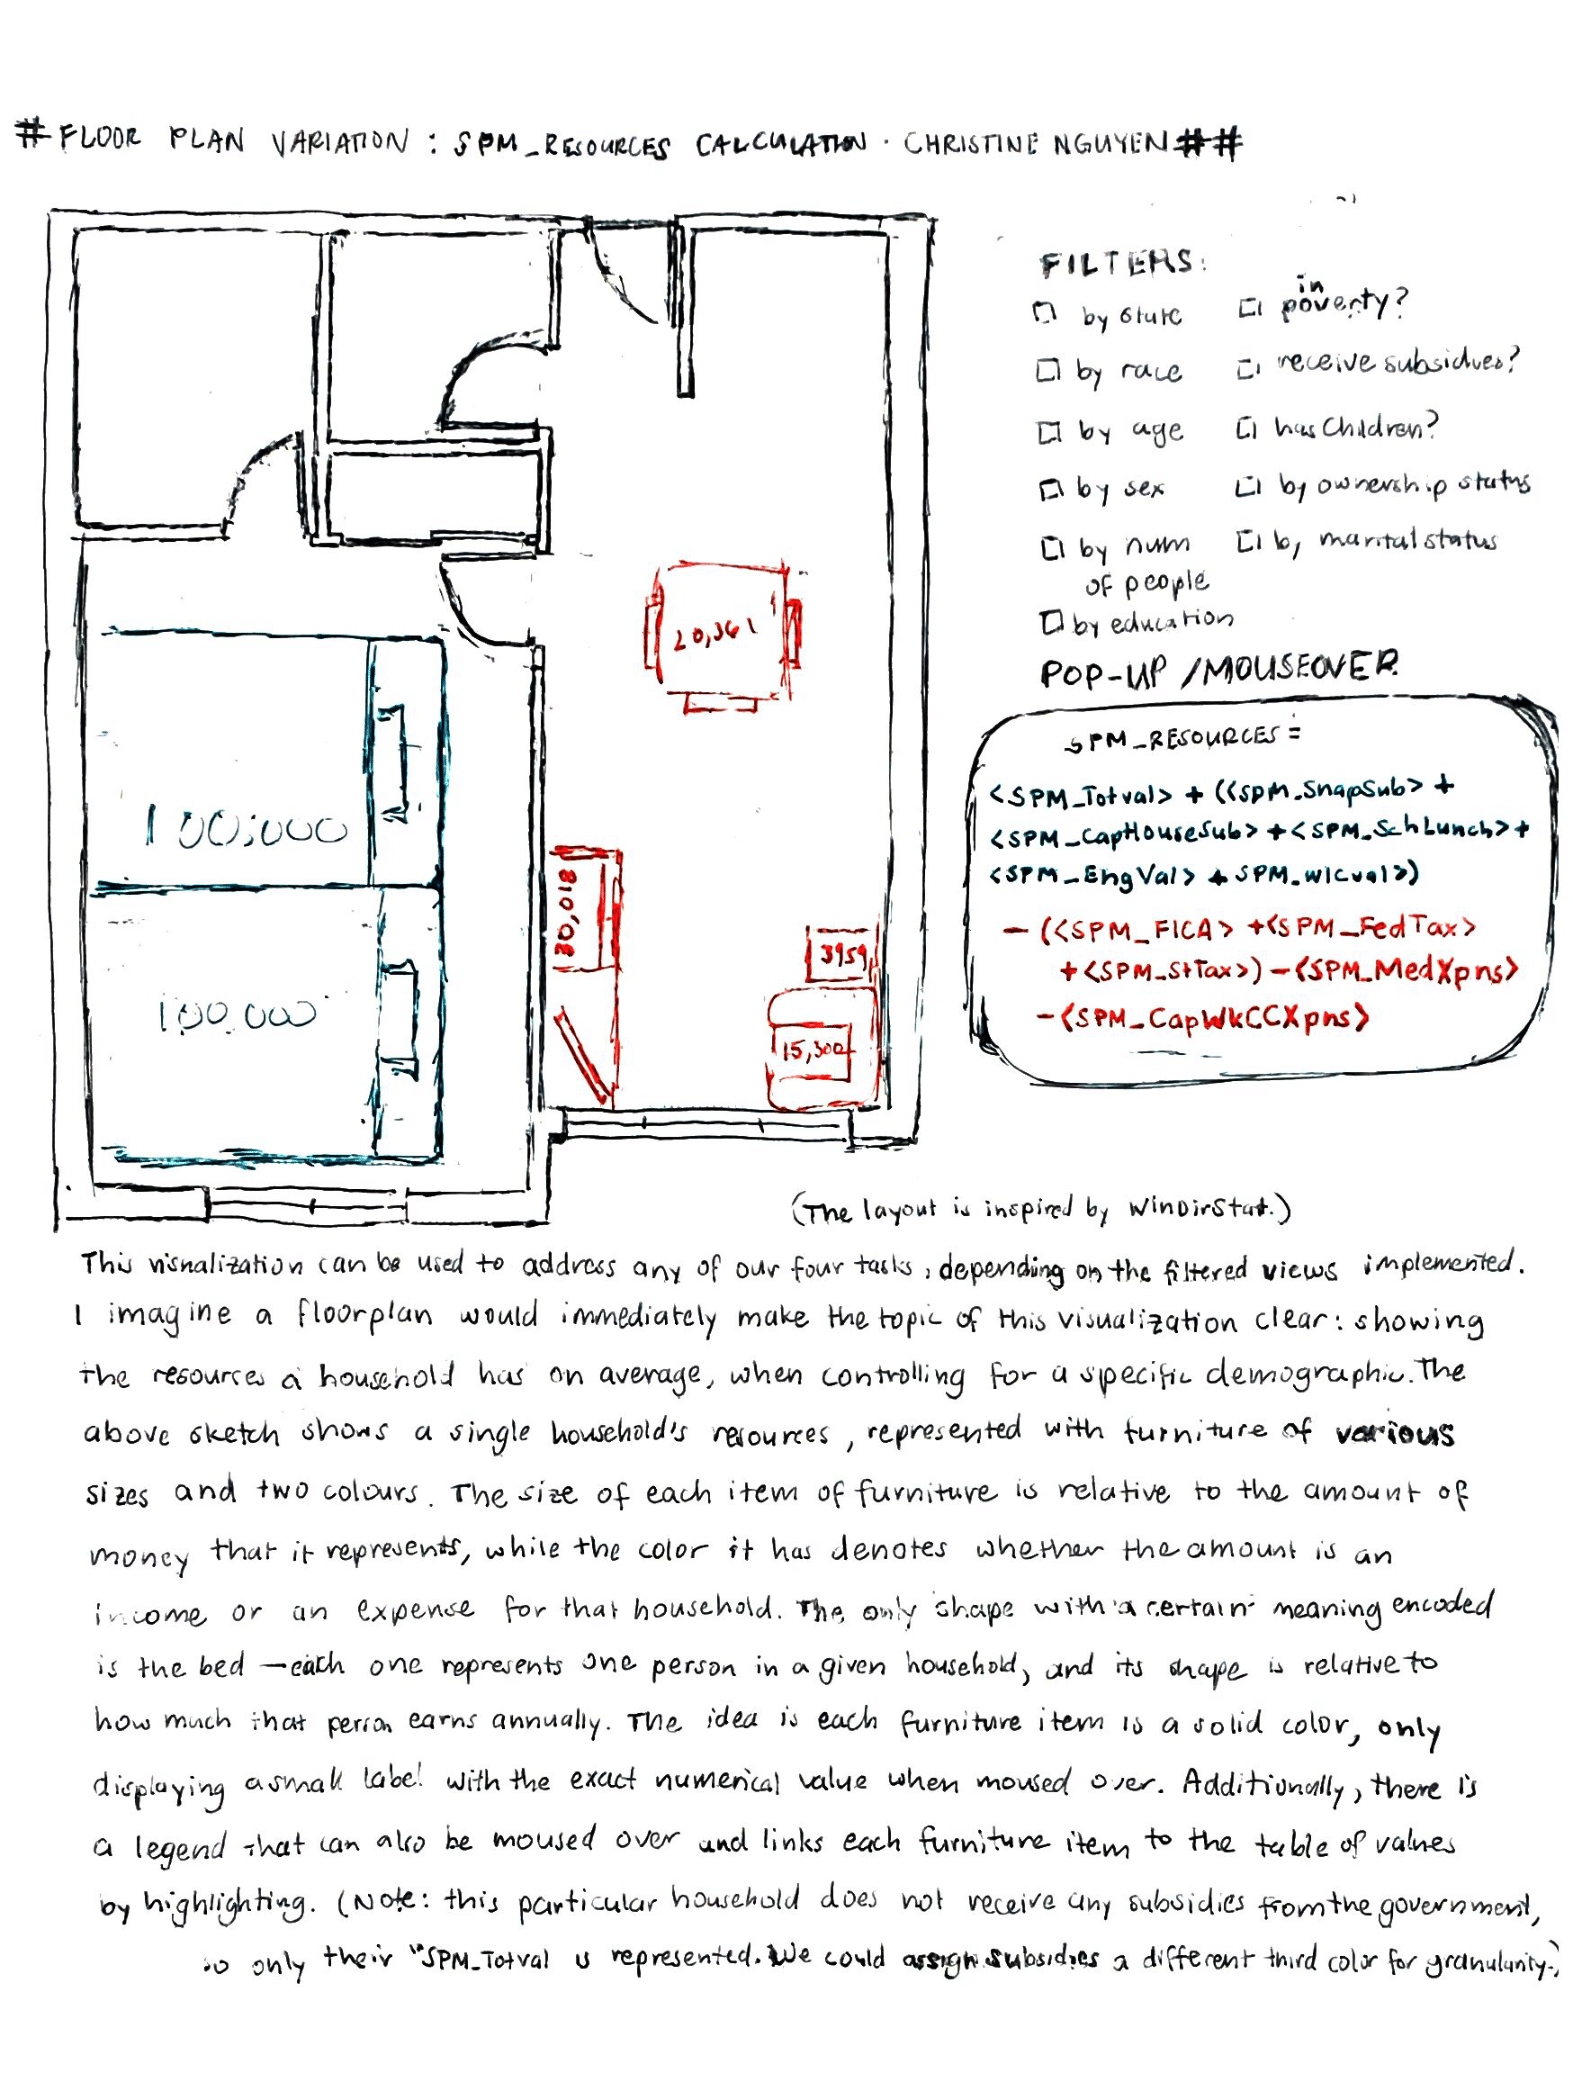 # FLOOR PLAN VARIATION : SPM_RESOURCES CALCULATION · CHRISTINE NGUYEN ##
FILTERS:
□ by state
□ in poverty?
□ by race
□ receive subsidies?
□ by age
□ has children?
□ by sex
□ by ownership status
□ by num of people
□ by marital status
□ by education
POP-UP / MOUSEOVER
SPM_RESOURCES =
<SPM_Totval> + (<SPM_SnapSub> +
<SPM_CapHouseSub> + <SPM_SchLunch> +
<SPM_EngVal> + SPM_wicval>)
- (<SPM_FICA> + <SPM_FedTax>
+ <SPM_StTax>) - <SPM_MedXpns>
- <SPM_CapWkCCXpns>
20,361
100,000
100,000
3959
15,300
(The layout is inspired by WinDirStat.)
This visualization can be used to address any of our four tasks, depending on the filtered views implemented.
I imagine a floorplan would immediately make the topic of this visualization clear: showing
the resources a household has on average, when controlling for a specific demographic. The
above sketch shows a single household's resources, represented with furniture of various
sizes and two colours. The size of each item of furniture is relative to the amount of
money that it represents, while the color it has denotes whether the amount is an
income or an expense for that household. The only shape with a certain meaning encoded
is the bed — each one represents one person in a given household, and its shape is relative to
how much that person earns annually. The idea is each furniture item is a solid color, only
displaying a small label with the exact numerical value when moused over. Additionally, there is
a legend that can also be moused over and links each furniture item to the table of values
by highlighting. (Note: this particular household does not receive any subsidies from the government,
so only their "SPM_Totval is represented. We could assign subsidies a different third color for granularity.)